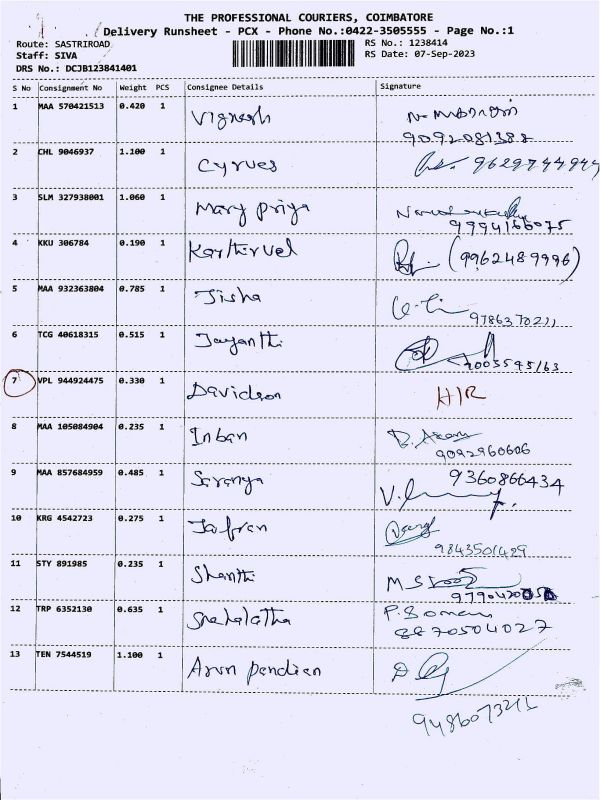 THE PROFESSIONAL COURIERS, COIMBATORE
Delivery Runsheet - PCX - Phone No.:0422-3505555 - Page No.:1
Route: SASTRIROAD
RS No.: 1238414
Staff: SIVA
RS Date: 07-Sep-2023
DRS No.: DCJB123841401
S No Consignment No Weight PCS Consignee Details Signature
1 MAA 570421513 0.420 1 Vignesh
9092081388
2 CHL 9046937 1.100 1 Cyrues 9629744944
3 SLM 327938001 1.060 1 Mary Priya
9994166075
4 KKU 306784 0.190 1 Karthirvel (9962489996)
5 MAA 932363804 0.785 1 Jisha
9786370211
6 TCG 40618315 0.515 1 Jayanthi
7005595163
7 VPL 944924475 0.330 1 Davidson H/R
8 MAA 105084904 0.235 1 Inban
9092960606
9 MAA 857684959 0.485 1 Saranya 9360866434
10 KRG 4542723 0.275 1 Jafran
9843501429
11 STY 891985 0.235 1 Shanthi
12 TRP 6352130 0.635 1 Snehalatha
8870504027
13 TEN 7544519 1.100 1 Arun pandian